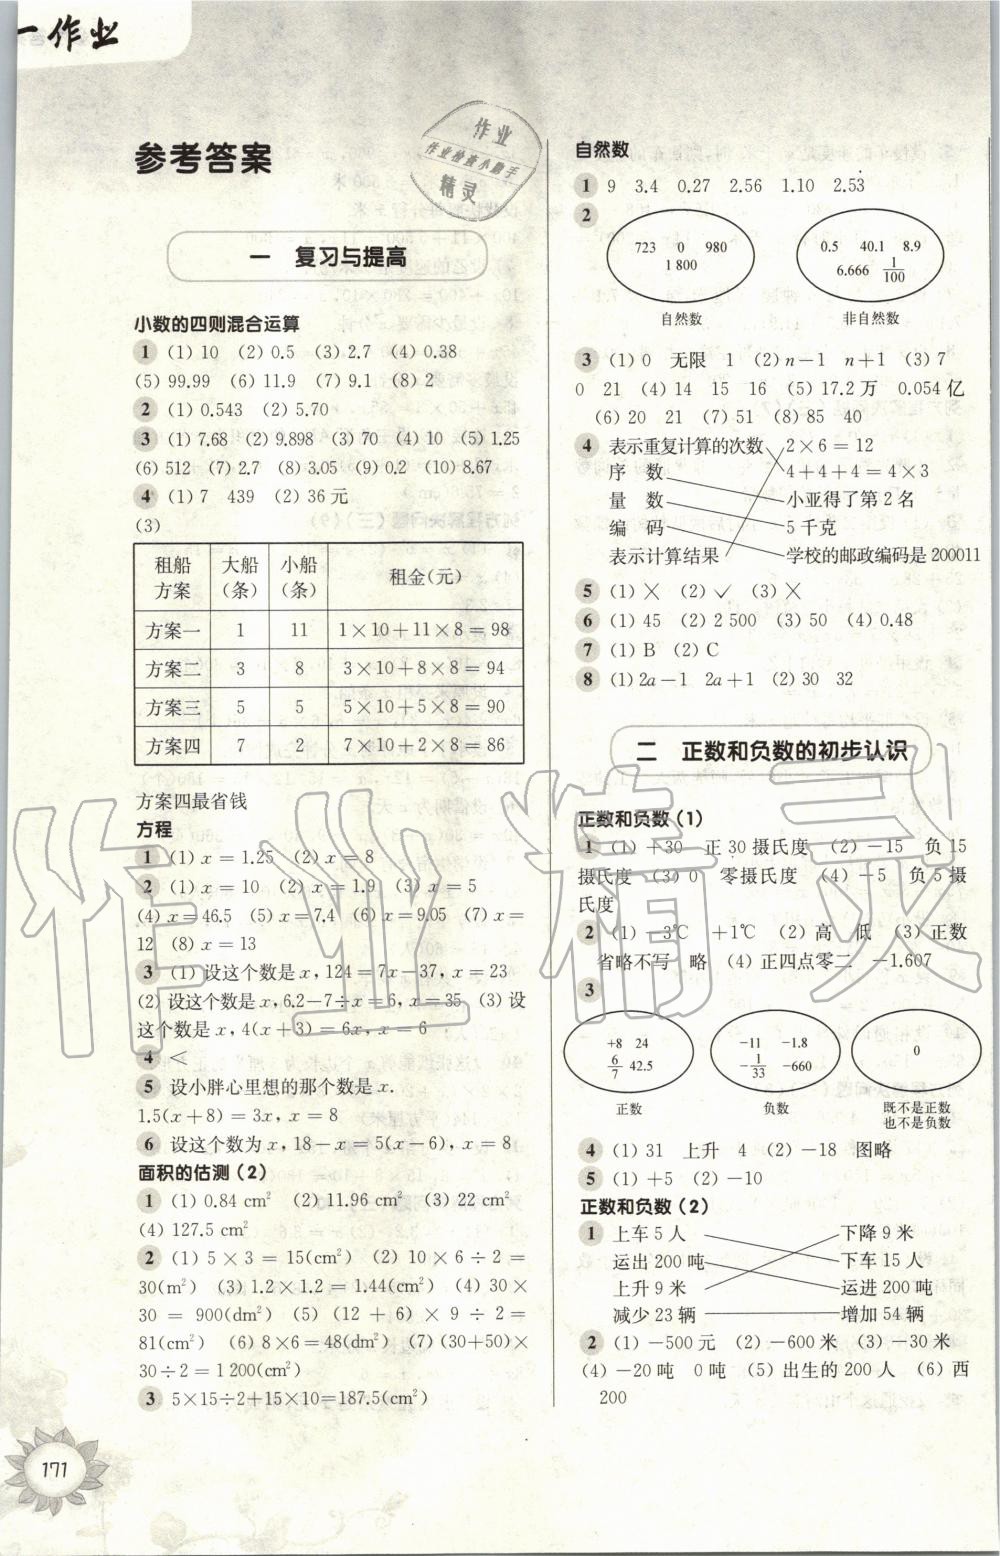 一作业
参考答案
作业
作业检查小助手
精灵
一 复习与提高
小数的四则混合运算
1 (1) 10 (2) 0.5 (3) 2.7 (4) 0.38
(5) 99.99 (6) 11.9 (7) 9.1 (8) 2
2 (1) 0.543 (2) 5.70
3 (1) 7.68 (2) 9.898 (3) 70 (4) 10 (5) 1.25
(6) 512 (7) 2.7 (8) 3.05 (9) 0.2 (10) 8.67
4 (1) 7 439 (2) 36 元
(3)
租船方案 大船(条) 小船(条) 租金(元)
方案一 1 11 1×10+11×8=98
方案二 3 8 3×10+8×8=94
方案三 5 5 5×10+5×8=90
方案四 7 2 7×10+2×8=86
方案四最省钱
方程
1 (1) x=1.25 (2) x=8
2 (1) x=10 (2) x=1.9 (3) x=5
(4) x=46.5 (5) x=7.4 (6) x=9.05 (7) x=
12 (8) x=13
3 (1) 设这个数是 x,124=7x-37,x=23
(2) 设这个数是 x,6.2-7÷x=6,x=35 (3) 设
这个数是 x,4(x+3)=6x,x=6
4 <
5 设小胖心里想的那个数是 x.
1.5(x+8)=3x,x=8
6 设这个数为 x,18-x=5(x-6),x=8
面积的估测(2)
1 (1) 0.84 cm² (2) 11.96 cm² (3) 22 cm²
(4) 127.5 cm²
2 (1) 5×3=15(cm²) (2) 10×6÷2=
30(m²) (3) 1.2×1.2=1.44(cm²) (4) 30×
30=900(dm²) (5) (12+6)×9÷2=
81(cm²) (6) 8×6=48(dm²) (7) (30+50)×
30÷2=1 200(cm²)
3 5×15÷2+15×10=187.5(cm²)
171
自然数
1 9 3.4 0.27 2.56 1.10 2.53
2
723 0 980
1 800
自然数
0.5 40.1 8.9
6.666 1/100
非自然数
3 (1) 0 无限 1 (2) n-1 n+1 (3) 7
0 21 (4) 14 15 16 (5) 17.2 万 0.054 亿
(6) 20 21 (7) 51 (8) 85 40
4 表示重复计算的次数 2×6=12
序 数 4+4+4=4×3
量 数 小亚得了第 2 名
编 码 5 千克
表示计算结果 学校的邮政编码是 200011
5 (1) × (2) ✓ (3) ×
6 (1) 45 (2) 2 500 (3) 50 (4) 0.48
7 (1) B (2) C
8 (1) 2a-1 2a+1 (2) 30 32
二 正数和负数的初步认识
正数和负数(1)
1 (1) +30 正 30 摄氏度 (2) -15 负 15
摄氏度 (3) 0 零摄氏度 (4) -5 负 5 摄
氏度
2 (1) -3℃ +1℃ (2) 高 低 (3) 正数
省略不写 略 (4) 正四点零二 -1.607
3
+8 24
6/7 42.5
正数
-11 -1.8
-1/33 -660
负数
0
既不是正数
也不是负数
4 (1) 31 上升 4 (2) -18 图略
5 (1) +5 (2) -10
正数和负数(2)
1 上车 5 人 下降 9 米
运出 200 吨 下车 15 人
上升 9 米 运进 200 吨
减少 23 辆 增加 54 辆
2 (1) -500 元 (2) -600 米 (3) -30 米
(4) -20 吨 0 吨 (5) 出生的 200 人 (6) 西
200
作业精灵